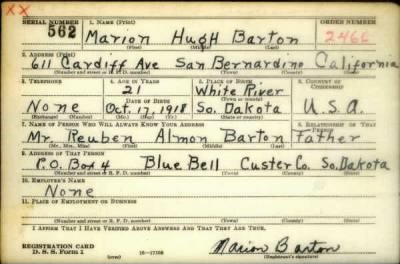 XX
SERIAL NUMBER 1. NAME (Print) ORDER NUMBER
562 Marion Hugh Barton 2466
(First) (Middle) (Last)
2. ADDRESS (Print)
611 Cardiff Ave San Bernardino California
(Number and street or R. F. D. number) (Town) (County) (State)
3. TELEPHONE 4. AGE IN YEARS 5. PLACE OF BIRTH 6. COUNTRY OF CITIZENSHIP
21 White River
(Town or county)
DATE OF BIRTH
None Oct. 17, 1918 So. Dakota U.S.A.
(Exchange) (Number) (Mo.) (Day) (Yr.) (State or country)
7. NAME OF PERSON WHO WILL ALWAYS KNOW YOUR ADDRESS 8. RELATIONSHIP OF THAT PERSON
Mr. Reuben Almon Barton Father
(Mr., Mrs., Miss) (First) (Middle) (Last)
9. ADDRESS OF THAT PERSON
P.O. Box 4 Blue Bell Custer Co. So. Dakota
(Number and street or R. F. D. number) (Town) (County) (State)
10. EMPLOYER'S NAME
None
11. PLACE OF EMPLOYMENT OR BUSINESS
(Number and street or R. F. D. number) (Town) (County) (State)
I AFFIRM THAT I HAVE VERIFIED ABOVE ANSWERS AND THAT THEY ARE TRUE.
REGISTRATION CARD
D. S. S. Form 1 16-17105 Marion Barton
(Registrant's signature)